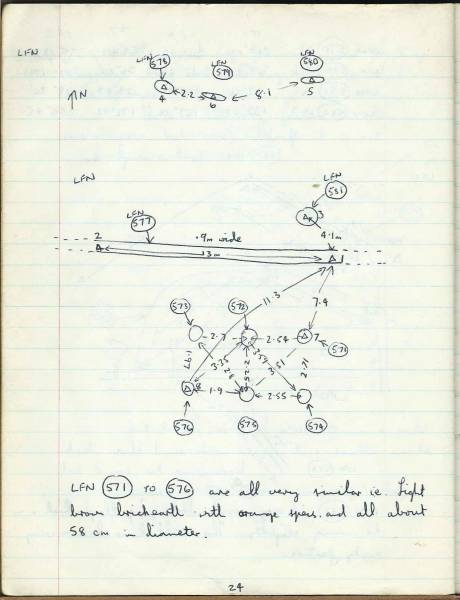 LFN
LFN 578
LFN 579
LFN 580
N
4
2.2
6
8.1
5
LFN
LFN 581
LFN 577
3
2
.9m wide
4.1m
13m
1
11.3
7.9
573
572
2.7
2.54
7
571
3.35
2.71
1.9
2.55
576
575
574
LFN 571 TO 576 are all very similar ie. Light
brown brickearth with orange specs. and all about
58 cm in diameter.
24